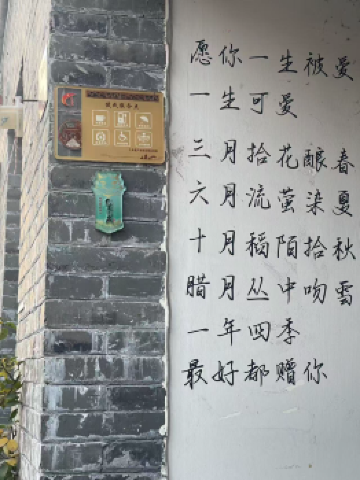 愿你一生被爱
一生可爱
三月拾花酿春
六月流萤染夏
十月稻陌拾秋
腊月丛中吻雪
一年四季
最好都赠你